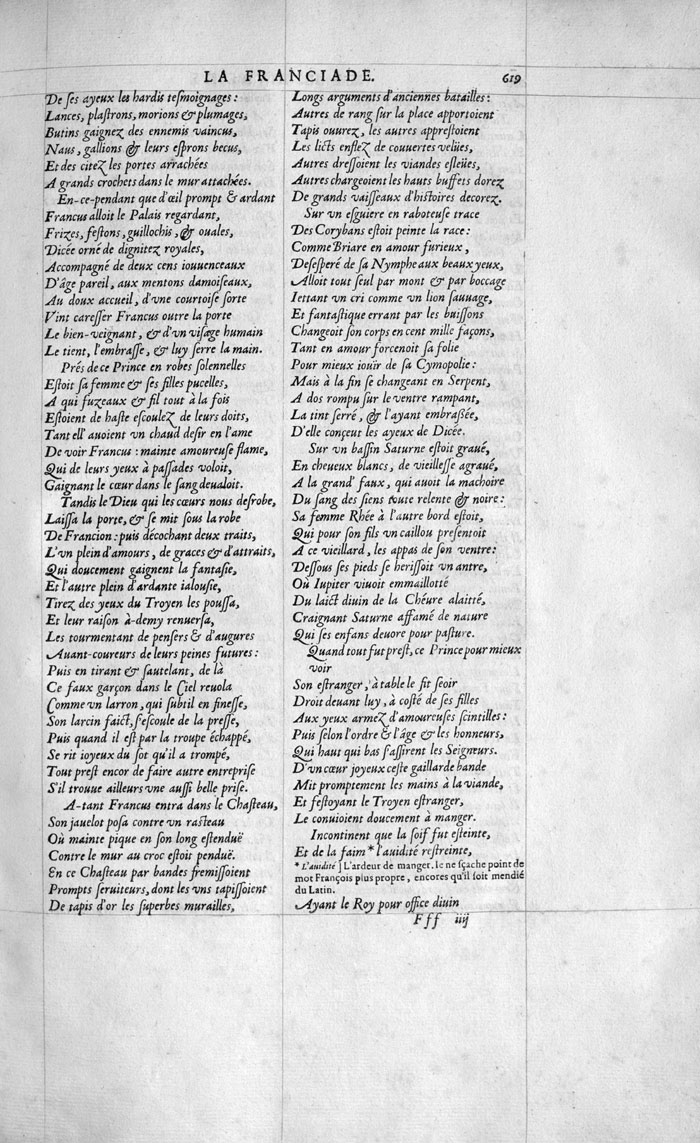 LA FRANCIADE. 619
De ſes ayeux les hardis teſmoignages :
Lances, plaſtrons, morions & plumages,
Butins gaignez des ennemis vaincus,
Naus, gallions & leurs eſprons becus,
Et des citez les portes arrachées
A grands crochets dans le mur attachées.
En-ce-pendant que d'œil prompt & ardant
Francus alloit le Palais regardant,
Frizes, feſtons, guillochis, & ouales,
Dicée orné de dignitez royales,
Accompagné de deux cens iouuenceaux
D'âge pareil, aux mentons damoiſeaux,
Au doux accueil, d'vne courtoiſe ſorte
Vint careſſer Francus outre la porte
Le bien-veignant, & d'vn viſage humain
Le tient, l'embraſſe, & luy ſerre la main.
Prés de ce Prince en robes ſolennelles
Eſtoit ſa femme & ſes filles pucelles,
A qui fuzeaux & fil tout à la fois
Eſtoient de haſte eſcoulez de leurs doits,
Tant ell' auoient vn chaud deſir en l'ame
De voir Francus : mainte amoureuſe flame,
Qui de leurs yeux à paſſades voloit,
Gaignant le cœur dans le ſang deualoit.
Tandis le Dieu qui les cœurs nous deſrobe,
Laiſſa la porte, & ſe mit ſous la robe
De Francion : puis décochant deux traits,
L'vn plein d'amours, de graces & d'attraits,
Qui doucement gaignent la fantaſie,
Et l'autre plein d'ardante ialouſie,
Tirez des yeux du Troyen les pouſſa,
Et leur raiſon à-demy renuerſa,
Les tourmentant de penſers & d'augures
Auant-coureurs de leurs peines futures :
Puis en tirant & ſautelant, de là
Ce faux garçon dans le Ciel reuola
Comme vn larron, qui ſubtil en fineſſe,
Son larcin faict, ſ'eſcoule de la preſſe,
Puis quand il eſt par la troupe échappé,
Se rit ioyeux du ſot qu'il a trompé,
Tout preſt encor de faire autre entrepriſe
S'il trouue ailleurs vne auſſi belle priſe.
A-tant Francus entra dans le Chaſteau,
Son jauelot poſa contre vn raſteau
Où mainte pique en ſon long eſtenduë
Contre le mur au croc eſtoit penduë.
En ce Chaſteau par bandes fremiſſoient
Prompts ſeruiteurs, dont les vns tapiſſoient
De tapis d'or les ſuperbes murailles,
Longs arguments d'anciennes batailles :
Autres de rang ſur la place apportoient
Tapis ouurez, les autres appreſtoient
Les licts enflez de couuertes veluës,
Autres dreſſoient les viandes eſleües,
Autres chargeoient les hauts buffets dorez
De grands vaiſſeaux d'hiſtoires decorez.
Sur vn eſguiere en raboteuſe trace
Des Corybans eſtoit peinte la race :
Comme Briare en amour furieux,
Deſeſperé de ſa Nymphe aux beaux yeux,
Alloit tout ſeul par mont & par boccage
Iettant vn cri comme vn lion ſauuage,
Et fantaſtique errant par les buiſſons
Changeoit ſon corps en cent mille façons,
Tant en amour forcenoit ſa folie
Pour mieux iouir de ſa Cymopolie :
Mais à la fin ſe changeant en Serpent,
A dos rompu ſur le ventre rampant,
La tint ſerré, & l'ayant embraßée,
D'elle conçeut les ayeux de Dicée.
Sur vn baſſin Saturne eſtoit graué,
En cheueux blancs, de vieilleſſe agraué,
A la grand' faux, qui auoit la machoire
Du ſang des ſiens toute relente & noire :
Sa femme Rhée à l'autre bord eſtoit,
Qui pour ſon fils vn caillou preſentoit
A ce vieillard, les appas de ſon ventre :
Deſſous ſes pieds ſe heriſſoit vn antre,
Où Iupiter viuoit emmaillotté
Du laict diuin de la Chéure alaitté,
Craignant Saturne affamé de nature
Qui ſes enfans deuore pour paſture.
Quand tout fut preſt, ce Prince pour mieux
voir
Son eſtranger, à table le fit ſeoir
Droit deuant luy, à coſté de ſes filles
Aux yeux armez d'amoureuſes ſcintilles :
Puis ſelon l'ordre & l'âge & les honneurs,
Qui haut qui bas ſ'aſſirent les Seigneurs.
D'vn cœur joyeux ceſte gaillarde bande
Mit promptement les mains à la viande,
Et feſtoyant le Troyen eſtranger,
Le conuioient doucement à manger.
Incontinent que la ſoif fut eſteinte,
Et de la faim * l'auidité reſtreinte,
* L'auidité ] L'ardeur de manger. Ie ne ſçache point de
mot François plus propre, encores qu'il ſoit mendié
du Latin.
Ayant le Roy pour office diuin
Fff iiij